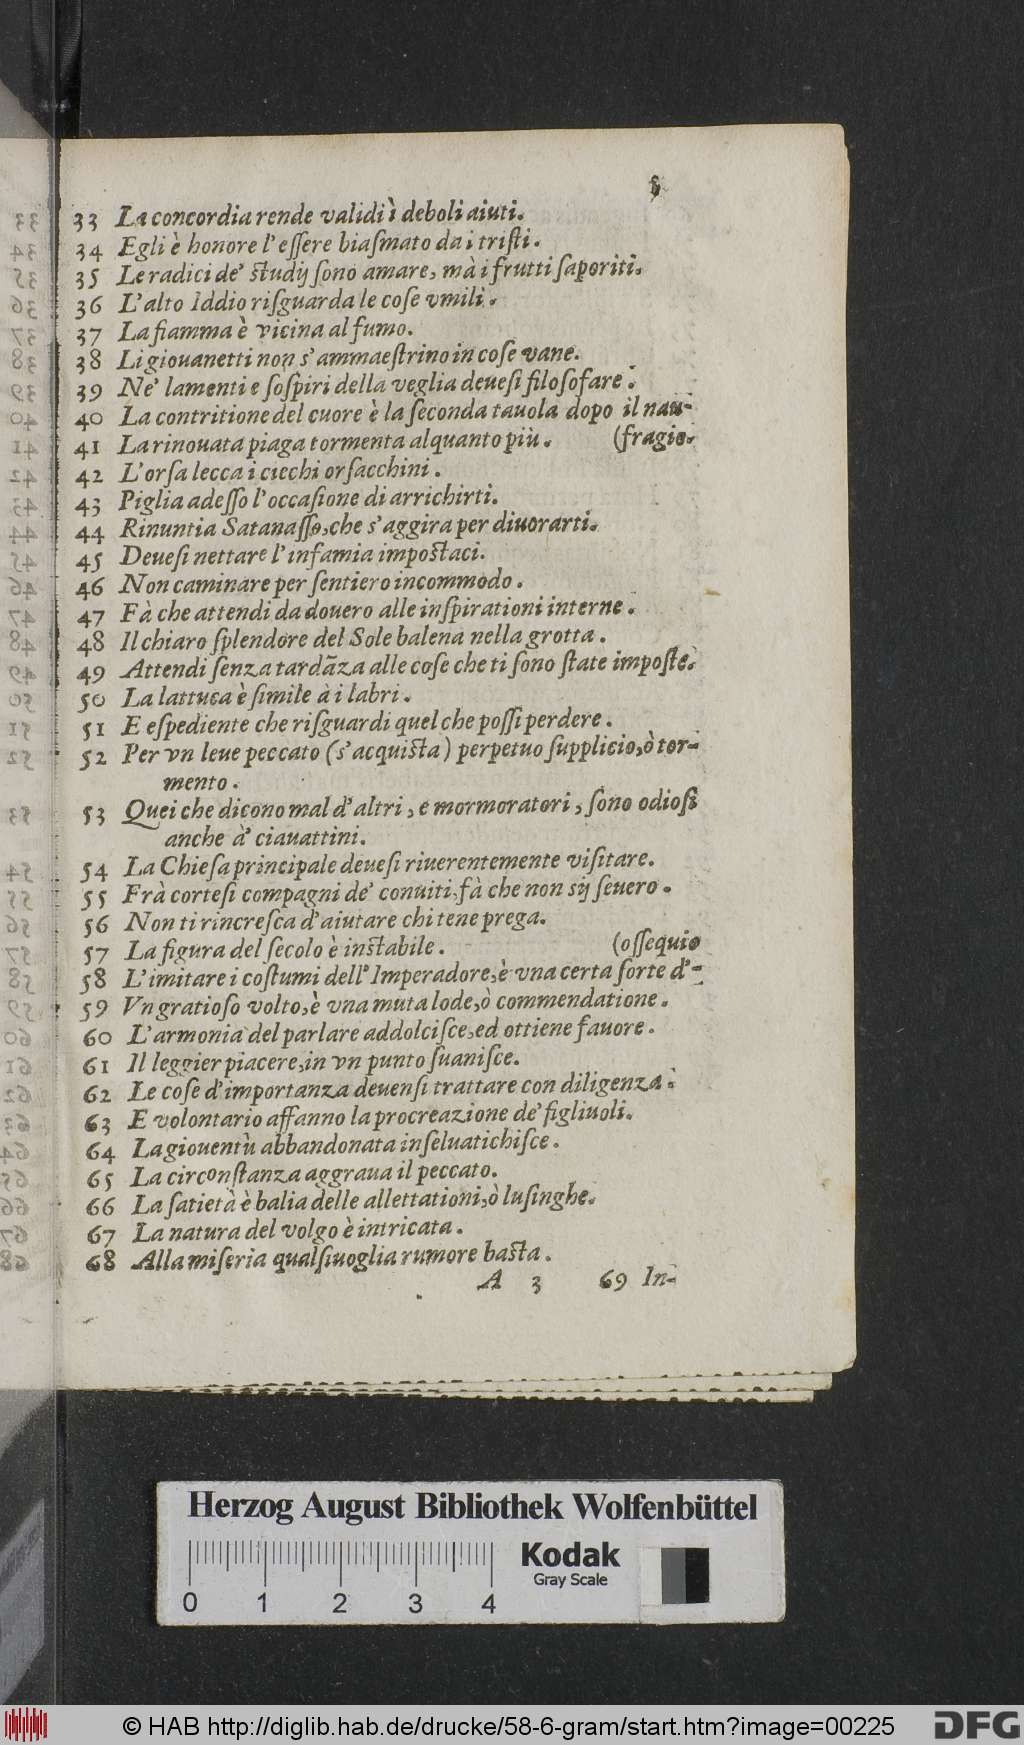 5
33 La concordia rende validi ì deboli aiuti.
34 Egli è honore l'eſſere biaſmato da i triſti.
35 Le radici de' ſtudij ſono amare, mà i frutti ſaporiti.
36 L'alto Iddio riſguarda le coſe vmili.
37 La fiamma è vicina al fumo.
38 Li giouanetti non s'ammaeſtrino in coſe vane.
39 Ne' lamenti e ſoſpiri della veglia deueſi filoſofare.
40 La contritione del cuore è la ſeconda tauola dopo il nau-
41 La rinouata piaga tormenta alquanto più. (fragio.
42 L'orſa lecca i ciechi orſacchini.
43 Piglia adeſſo l'occaſione di arrichirti.
44 Rinuntia Satanaſſo, che s'aggira per diuorarti.
45 Deueſi nettare l'infamia impoſtaci.
46 Non caminare per ſentiero incommodo.
47 Fà che attendi da douero alle inſpirationi interne.
48 Il chiaro ſplendore del Sole balena nella grotta.
49 Attendi ſenza tardãza alle coſe che ti ſono ſtate impoſte.
50 La lattuca è ſimile à i labri.
51 E eſpediente che riſguardi quel che poſſi perdere.
52 Per vn leue peccato (s'acquiſta) perpetuo ſupplicio, ò tor-
mento.
53 Quei che dicono mal d'altri, e mormoratori, ſono odioſi
anche à' ciauattini.
54 La Chieſa principale deueſi riuerentemente viſitare.
55 Frà corteſi compagni de' conuiti, fà che non sij ſeuero.
56 Non ti rincreſca d'aiutare chi tene prega.
57 La figura del ſecolo è inſtabile. (oſſequio
58 L'imitare i coſtumi dell'Imperadore, è vna certa ſorte d'-
59 Vn gratioſo volto, è vna muta lode, ò commendatione.
60 L'armonia del parlare addolciſce, ed ottiene fauore.
61 Il leggier piacere, in vn punto ſuaniſce.
62 Le coſe d'importanza deuenſi trattare con diligenza.
63 E volontario affanno la procreazione de' figliuoli.
64 La giouentù abbandonata inſeluatichiſce.
65 La circonſtanza aggraua il peccato.
66 La ſatietà è balia delle allettationi, ò luſinghe.
67 La natura del volgo è intricata.
68 Alla miſeria qualſiuoglia rumore baſta.
A 3 69 In-
Herzog August Bibliothek Wolfenbüttel
Kodak
Gray Scale
0 1 2 3 4
© HAB http://diglib.hab.de/drucke/58-6-gram/start.htm?image=00225
DFG